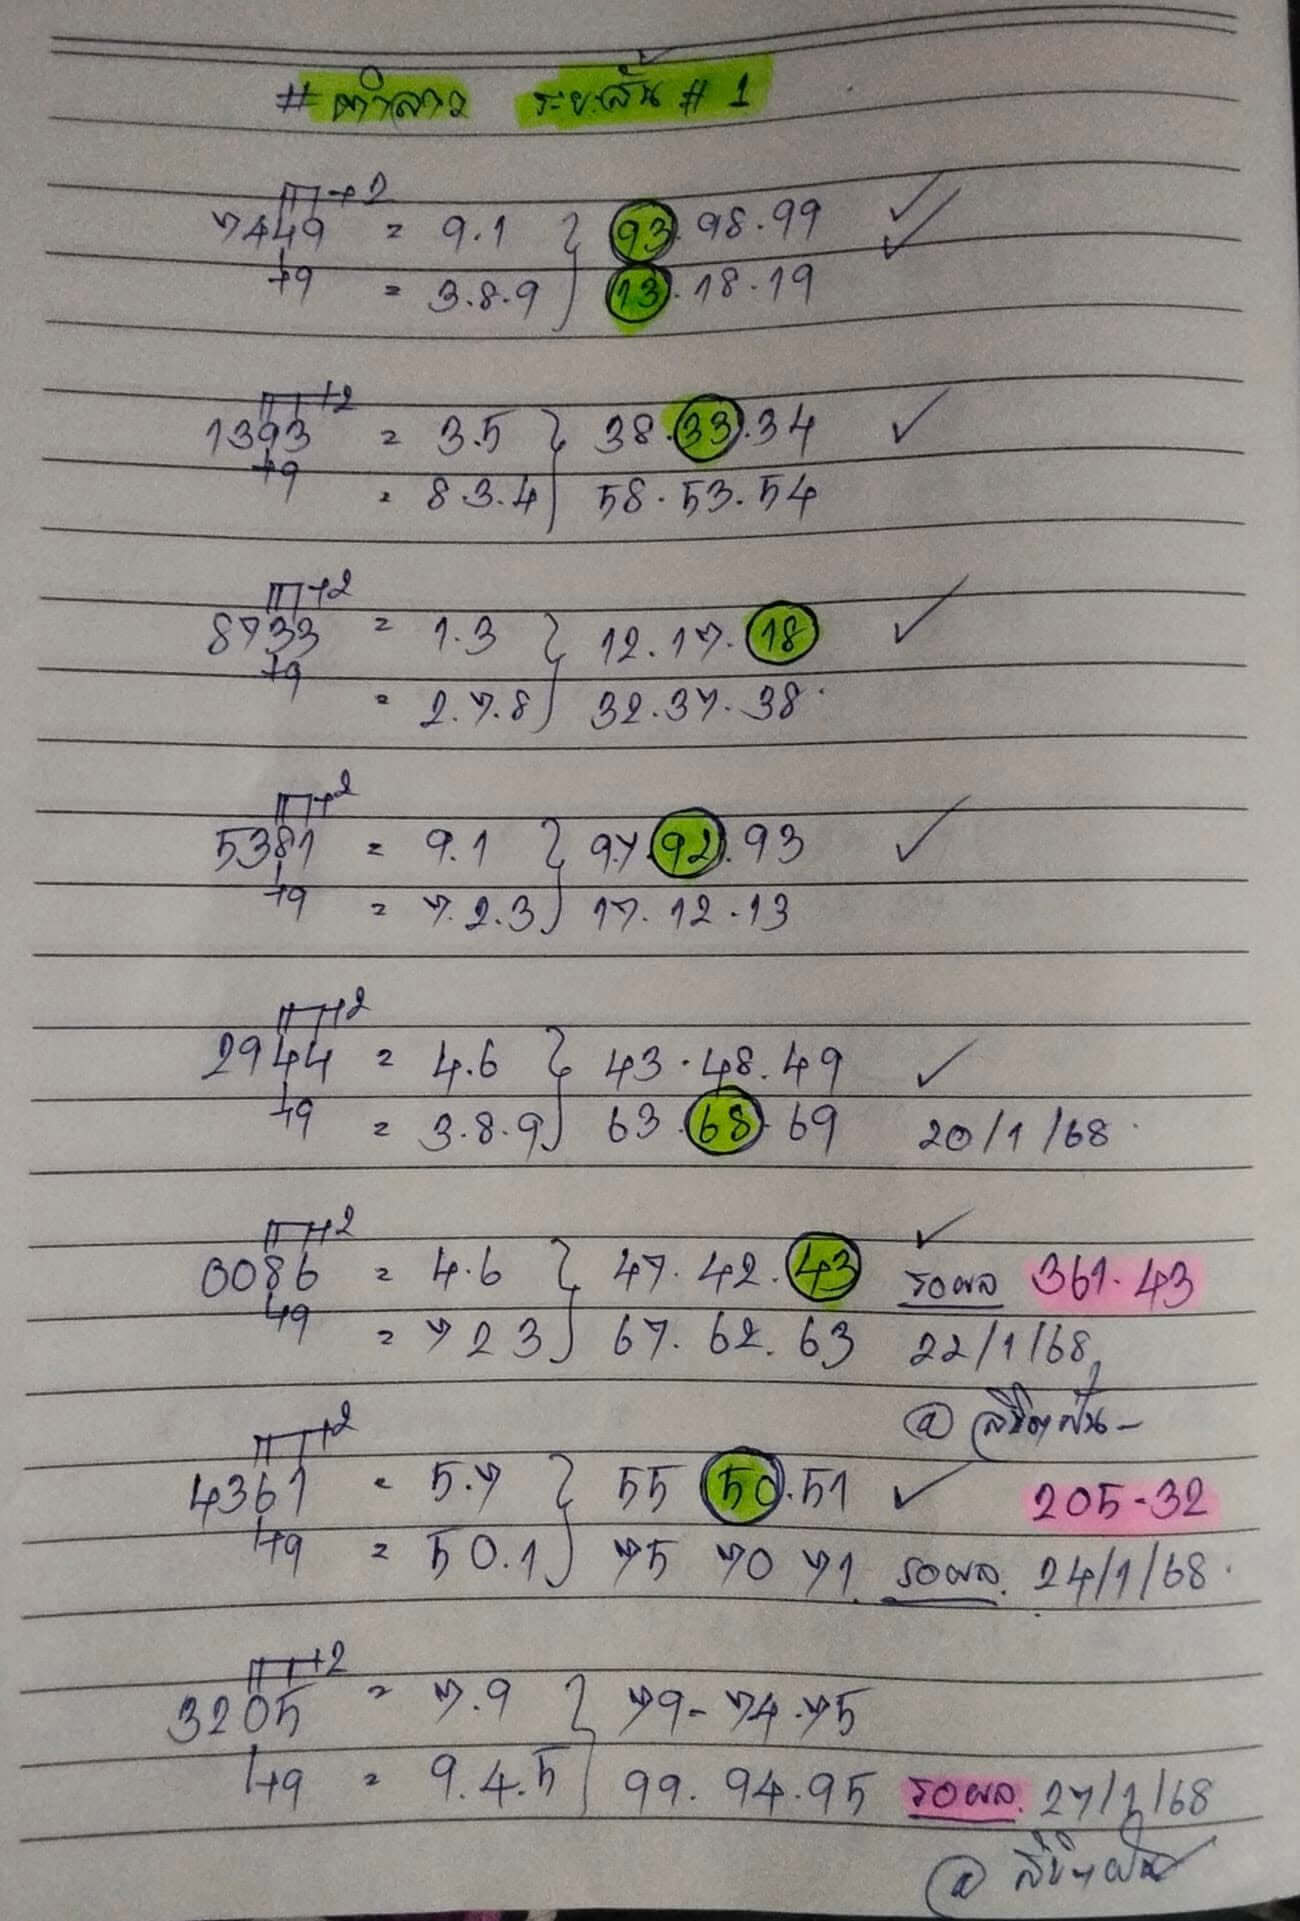 # ตำลาว ระยะสั้น # 1
+2
7449 = 9.1 } 93. 98. 99
+9 = 3.8.9 13. 18. 19
+2
1393 = 3.5 } 38. 33. 34
+9 = 8 3.4 58. 53. 54
+2
8733 = 1.3 } 12. 17. 18
+9 = 2.7.8 32. 37. 38
+2
5381 = 9.1 } 97. 92. 93
+9 = 7.2.3 17. 12. 13
+2
2944 = 4.6 } 43. 48. 49
+9 = 3.8.9 63. 68. 69 20/1/68
+2
0086 = 4.6 } 47. 42. 43 รอผล 361. 43
+9 = 7 2 3 67. 62. 63 22/1/68
@
+2
4361 = 5.7 } 55 50. 51 205-32
+9 = 5 0.1 75 70 71 รอผล. 24/1/68
+2
3205 = 7.9 } 79- 74. 75
+9 = 9.4.5 99. 94. 95 รอผล. 27/1/68
@